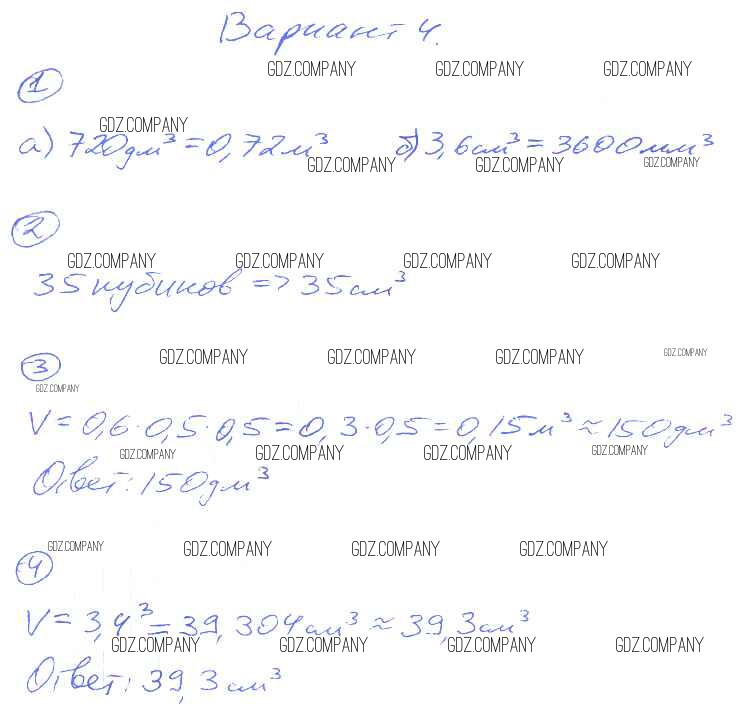 Вариант 4.
GDZ.COMPANY GDZ.COMPANY GDZ.COMPANY
1
GDZ.COMPANY
а) 720дм³ = 0,72м³ б) 3,6см³ = 3600мм³
GDZ.COMPANY GDZ.COMPANY GDZ.COMPANY
2
GDZ.COMPANY GDZ.COMPANY GDZ.COMPANY GDZ.COMPANY
35 кубиков => 35см³
GDZ.COMPANY GDZ.COMPANY GDZ.COMPANY GDZ.COMPANY
3
GDZ.COMPANY
V = 0,6·0,5·0,5 = 0,3·0,5 = 0,15м³ ≈ 150дм³
GDZ.COMPANY GDZ.COMPANY GDZ.COMPANY GDZ.COMPANY
Ответ: 150дм³
GDZ.COMPANY GDZ.COMPANY GDZ.COMPANY GDZ.COMPANY
4
V = 3,4³ = 39,304см³ ≈ 39,3см³
GDZ.COMPANY GDZ.COMPANY GDZ.COMPANY GDZ.COMPANY
Ответ: 39,3см³